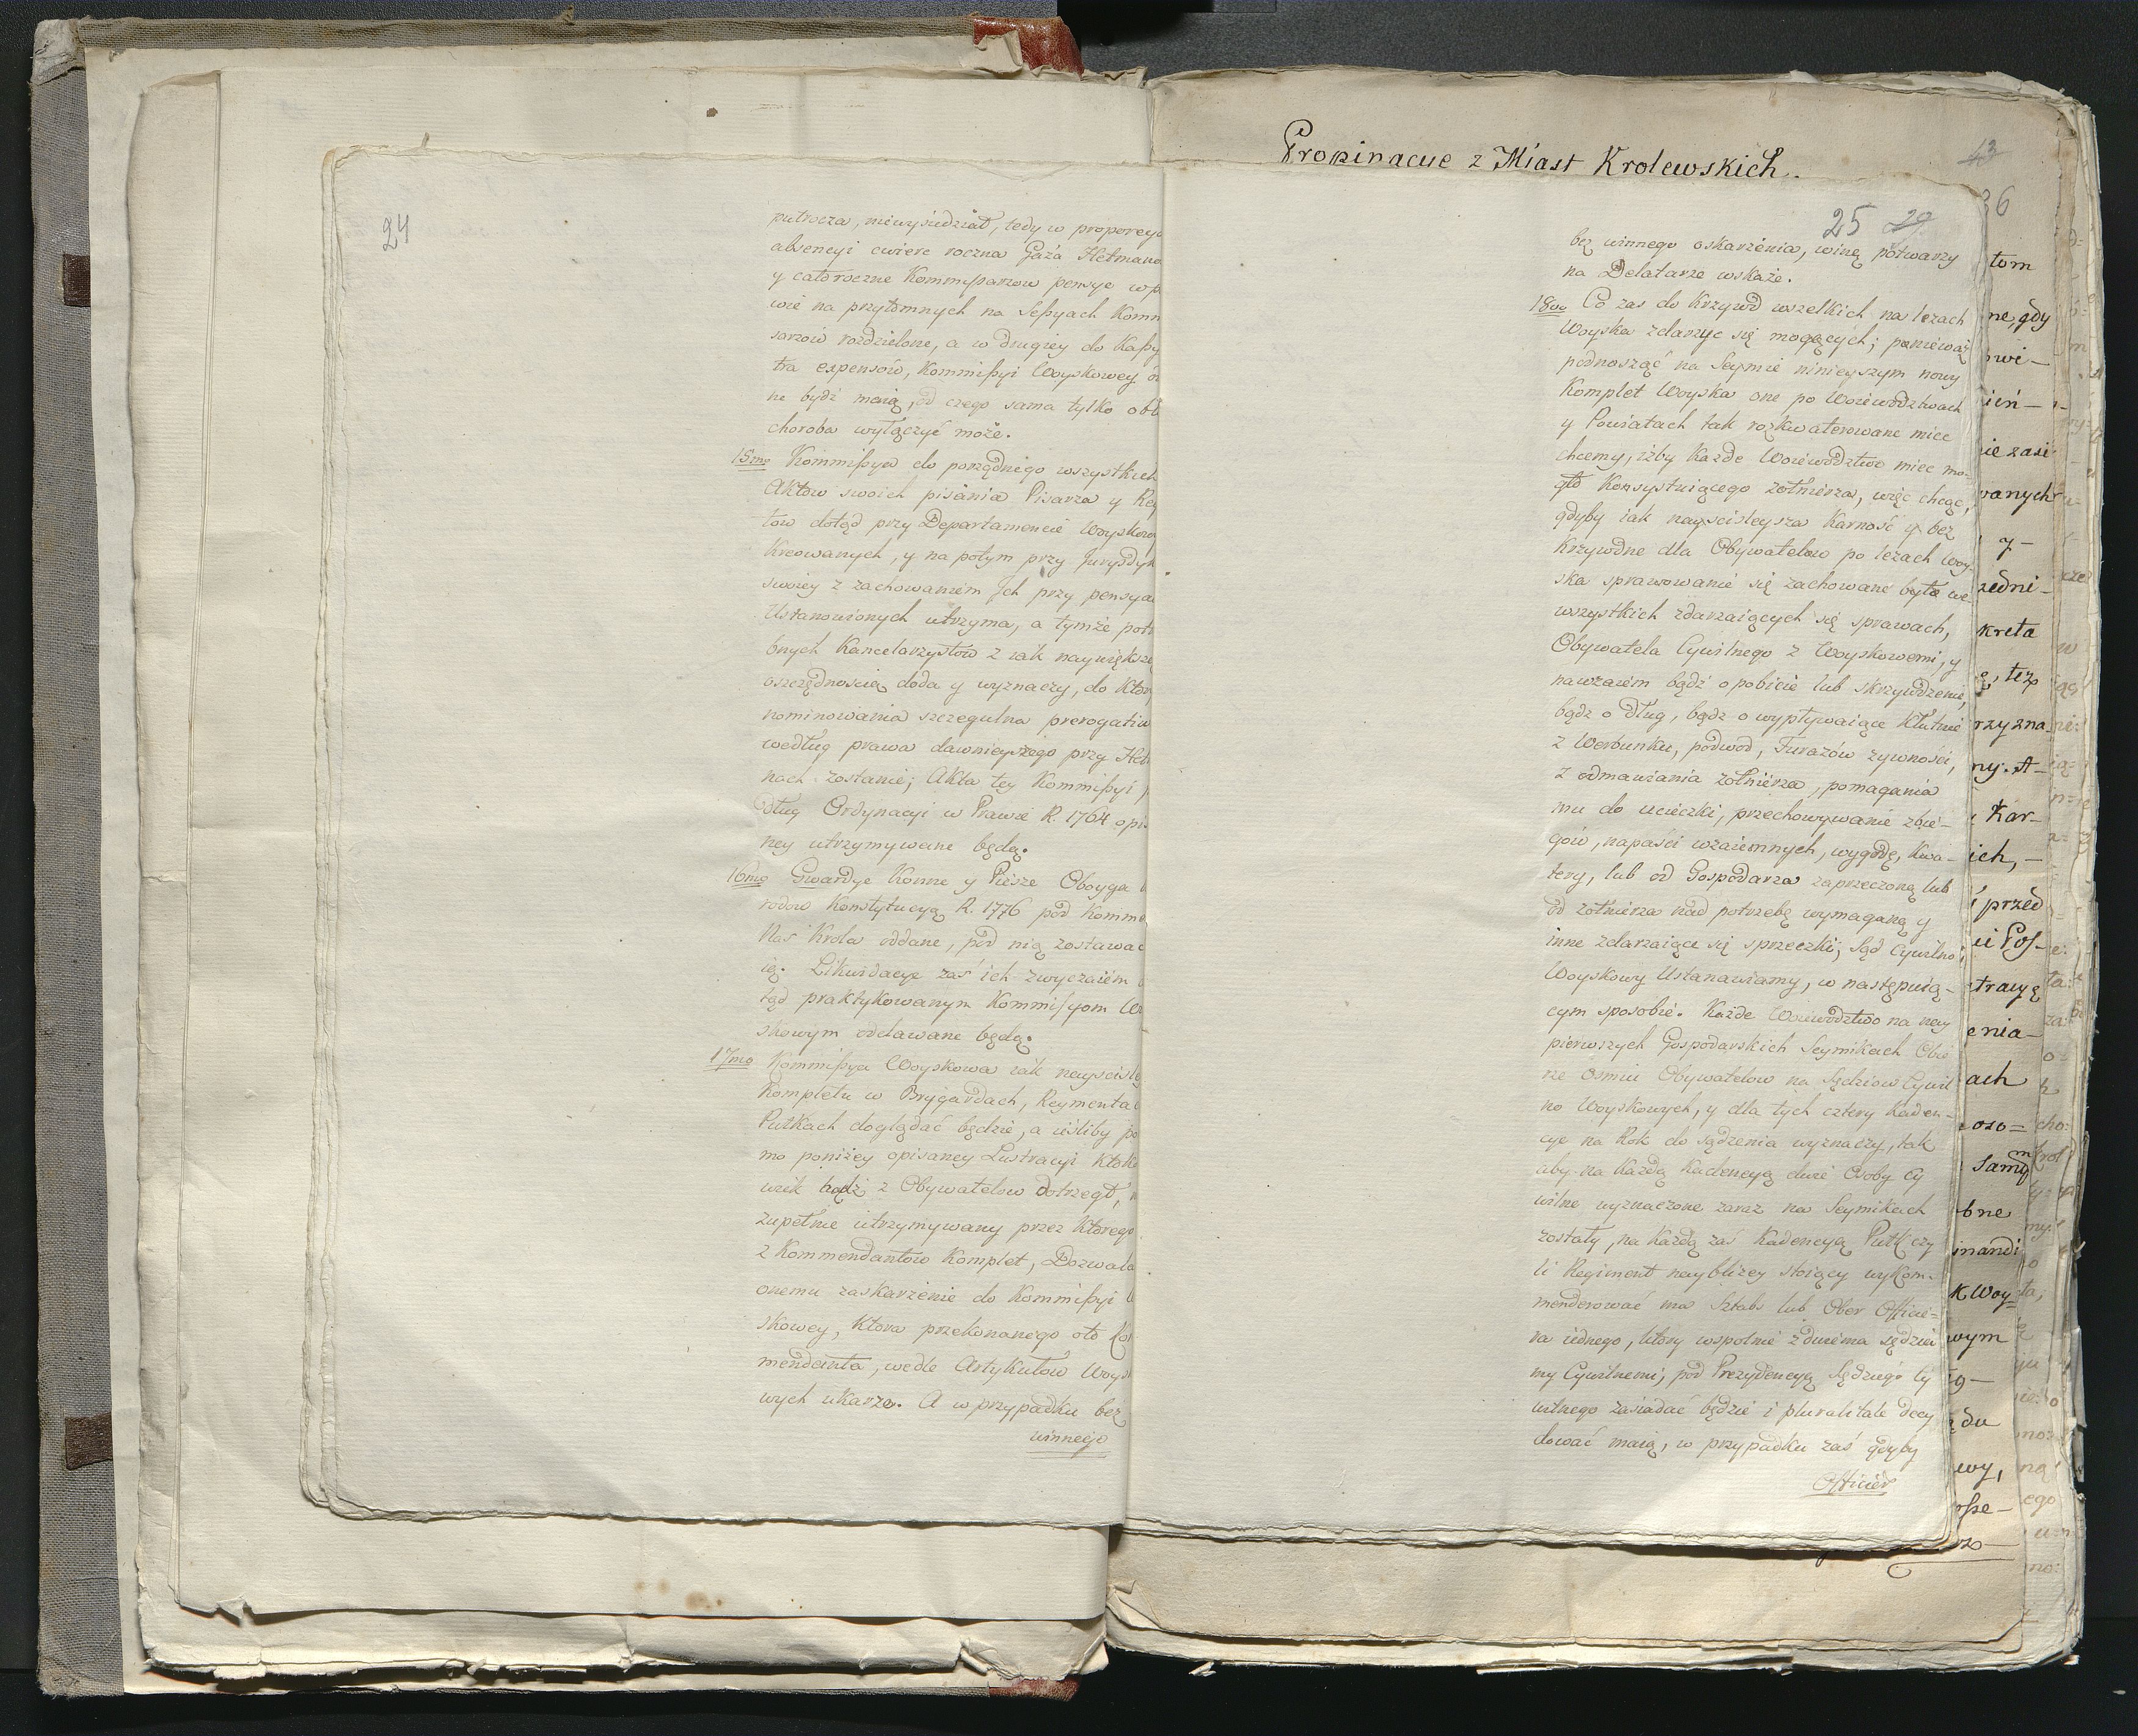 24
putrocza, niewysiedział, tedy w proporcy
absencyi cwierc roczna Gaża Hetmano
y całoroczne Kommißarzow pensye w p
wie na przytomnych na Seßyach Komm
sarzow rozdzielone, a w drugiey do Kaßy
tra expensów, Kommißyi Woyskowey
ne bydź maią, od czego sama tylko obł
choroba wyłączyć może.
15mo Kommißya do porządnego wszystkich
Aktow swoich pisania Pisarza y Rey
tow dotąd przy Departamencie Woyskow
Kreowanych, y na potym przy Jurysdyk
swoiey z zachowaniem Jch przy pensya
Ustanowionych utrzyma, a tymże potr
bnych Kancelarzystow z iak naywiększą
oszczędnoscią doda y wyznaczy, do Ktor
nominowania szczegulna prerogatiw
według prawa dawnieyszego przy Het
nach zostanie; Akta tey Kommißyi p
dług Ordynacyi w Prawie R. 1764 opis
ney utrzymywane będą.
16mo Gwardye Konne y Piesze Oboyga
rodow Konstytucyą R. 1776 pod Komme
Nas Krola oddane, pod nią zostawać
ią. Likwidacye zaś ich zwyczaiem
tąd praktykowanym Kommissyom Wo
skowym oddawane będą.
17mo Kommißya Woyskowa iak nayscisle
Kompletu w Brygardach, Reymentac
Pułkach doglądać będzie, a ieśliby po
mo poniżey opisaney Lustracyi Ktoko
wiek bądź z Obywatelow dotrzegł,
zupełnie utrzymywany przez Ktorego
z Kommendantow Komplet, Dozwala
onemu zaskarżenie do Kommißyi
skowey, Ktora przekonanego oto Ko
mendanta, wedle Artykułow Woys
wych ukarze. A w przypadku bez
winnego
Propinacye z Miast Krolewskich.
43
36
25 29
bez winnego oskarżenia, winę potwarzy
na Delatarze wskaże.
18vo Co zas do Krzywd wszelkich na leżach
Woyska zdarzyc się mogących; ponieważ
podnosząć na Seymie ninieyszym nowy
Komplet Woyska one po Woiewodztwach
y Powiatach tak rozkwaterowane miec
chcemy, iżby Każde Woiewodztwo miec mo-
gło Konsystuiącego żołnierza, więc chcąc,
gdyby iak nayscisleysza Karność y bez
Krzywdne dla Obywatelow po leżach Woy-
ska sprawowanie się zachowane było we
wszystkich zdarzaiących się sprawach,
Obywatela Cywilnego z Woyskowemi, y
nawzaiem bądź o pobicie lub skrzywdzenie,
bądz o dług, bądz o wypływaiące Kłutnie
z Werbunku, podwod, Furażów żywności,
z odmawiania żołnierza, pomagania
mu do ucieczki, przechowywanie zbie-
gów, napaści wzaiemnych, wygodę, Kwa-
tery, lub od Gospodarza zaprzeczoną lub
od żołnierza nad potrzebę wymaganą y
inne zdarzaiące się sprzeczki, Sąd Cywilno
Woyskowy Ustanawiamy, w następuią-
cym sposobie. Każde Woiewodztwo na nay
pierwszych Gospodarskich Seymikach Obie
rze osmiu Obywatelow na Sędziow Cywil
no Woyskowych, y dla tych cztery Kaden-
cye na Rok do sądzenia wyznaczy, tak
aby na Każdą Kadencyą dwie Osoby Cy
wilne wyznaczone zaraz na Seymikach
zostały, na Każdą zaś Kadencyą Pułk czy
li Regiment naybliżey stoiący wykom-
menderować ma Sztabs lub Ober Officie-
ra iednego, ktory wspolnie z dwiema sędzia
my Cywilnemi, pod Prezydencyą Sędziego Cy
wilnego zasiadać będzie i pluralitate decy
dować maią, w przypadku zaś gdyby
Officier
tom
ne, gdy
wi-
ień-
ie zasi
wanych
y-
zedni-
kreta
tez
rzyzna
ny. A-
Kar-
ich,-
przed
ei Pos-
trawę
enia-
ach
oso=
samym
bne
inandi
k Woy=
wym
du
wy,